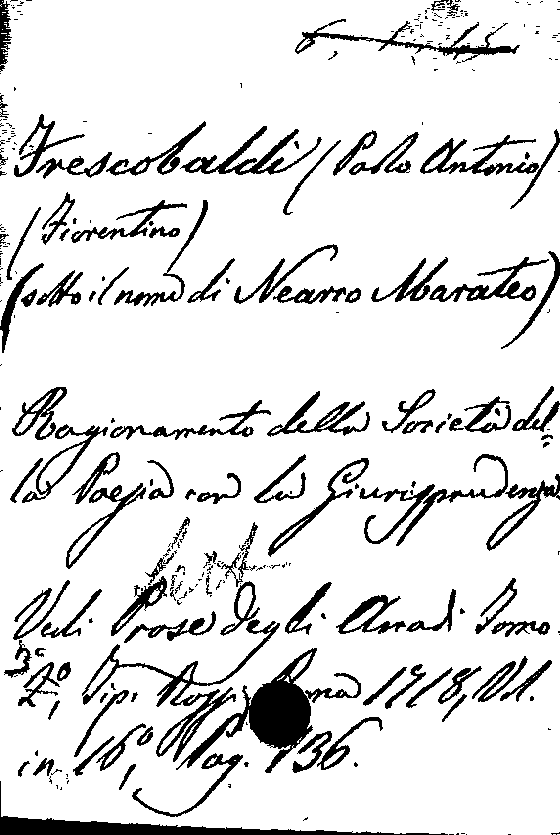 Frescobaldi (Paolo Antonio)
(Fiorentino)
(sotto il nome di Nearco Marateo)
Ragionamento della Società del=
la Poesia con la Giurisprudenza
Vedi Prose degli Arcadi Tomo
3º
2º, Tip. Rossi, Roma 1718, Vol.
in 16º, Pag. 136.